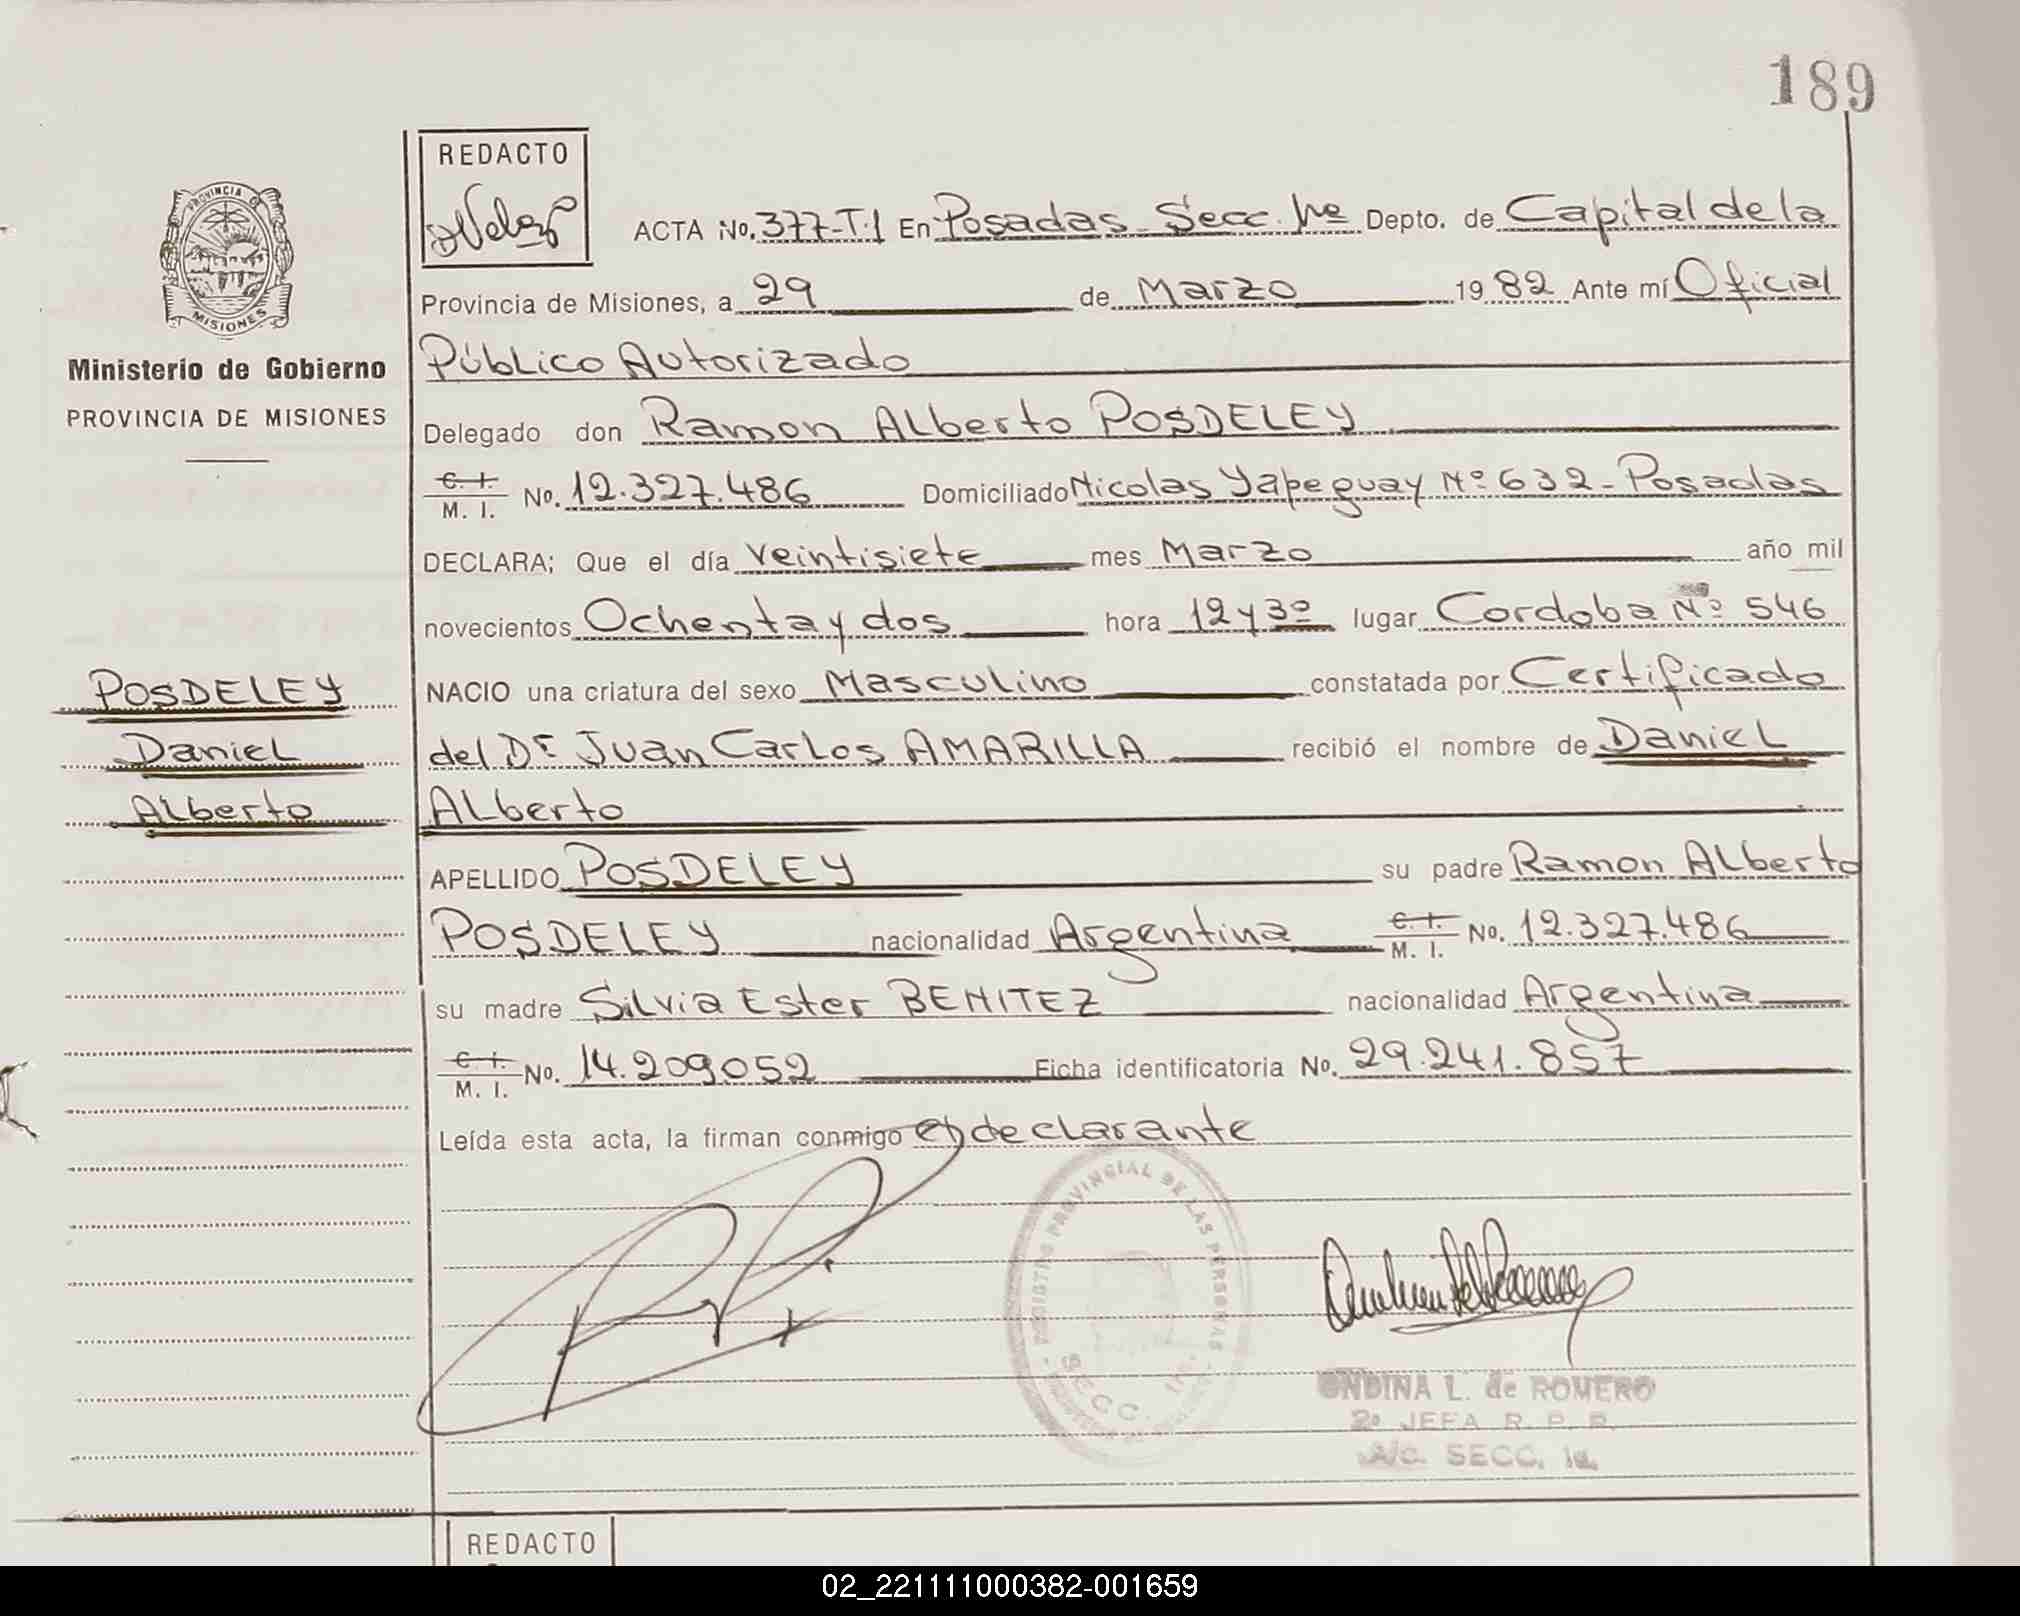 189
REDACTO
ACTA No. 377-T.1 En Posadas Secc. 1ra Depto. de Capital de la
Provincia de Misiones, a 29 de Marzo 1982 Ante mí Oficial
Público Autorizado
PROVINCIA DE
MISIONES
Ministerio de Gobierno
PROVINCIA DE MISIONES
Delegado don Ramon Alberto POSDELEY
C. I.
M. I. No. 12.327.486 Domiciliado Nicolas Yapeguay Nº 632 - Posadas
DECLARA; Que el día veintisiete mes Marzo año mil
novecientos Ochenta y dos hora 12 y 30 lugar Cordoba Nº 546
POSDELEY
Daniel
Alberto
NACIO una criatura del sexo Masculino constatada por Certificado
del Dr. Juan Carlos AMARILLA recibió el nombre de Daniel
Alberto
APELLIDO POSDELEY su padre Ramon Alberto
POSDELEY nacionalidad Argentina C. I. M. I. No. 12.327.486
su madre Silvia Ester BENITEZ nacionalidad Argentina
C. I. M. I. No. 14.209.052 Ficha identificatoria No. 29.241.857
Leída esta acta, la firman conmigo el declarante
REGISTRO PROVINCIAL DE LAS PERSONAS
SECC. 1ra.
ONDINA L. de ROMERO
2º JEFA R. P. P.
A/c. SECC. 1a.
REDACTO
02_221111000382-001659